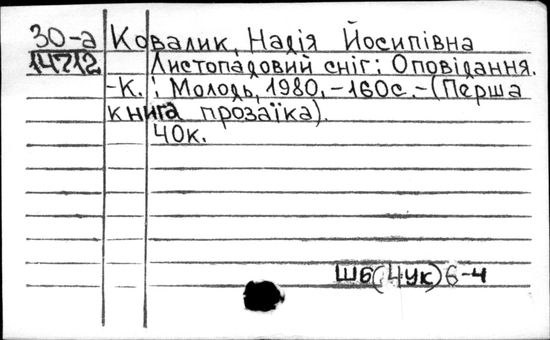 30-а Ковалик, Надія Йосипівна
14712 Листопадовий сніг: Оповідання.
-К.: Молодь, 1980. -160с. -(Перша
книга прозаїка).
40к.
Ш6(4Ук)6-4